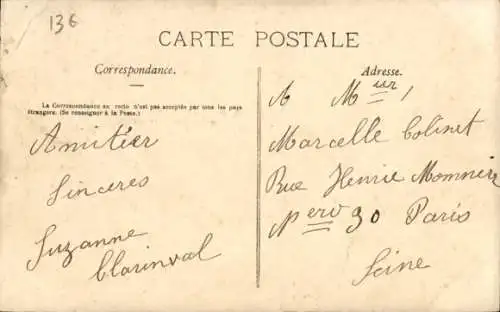 136
CARTE POSTALE
Correspondance.
La Correspondance au recto n'est pas acceptée par tous les pays
étrangers. (Se renseigner à la Poste.)
Amitiér
Sinceres
Suzanne
Clarinval
Adresse.
A Msur
Marcelle Colinet
Rue Henrie Momnier
30 Paris
Seine